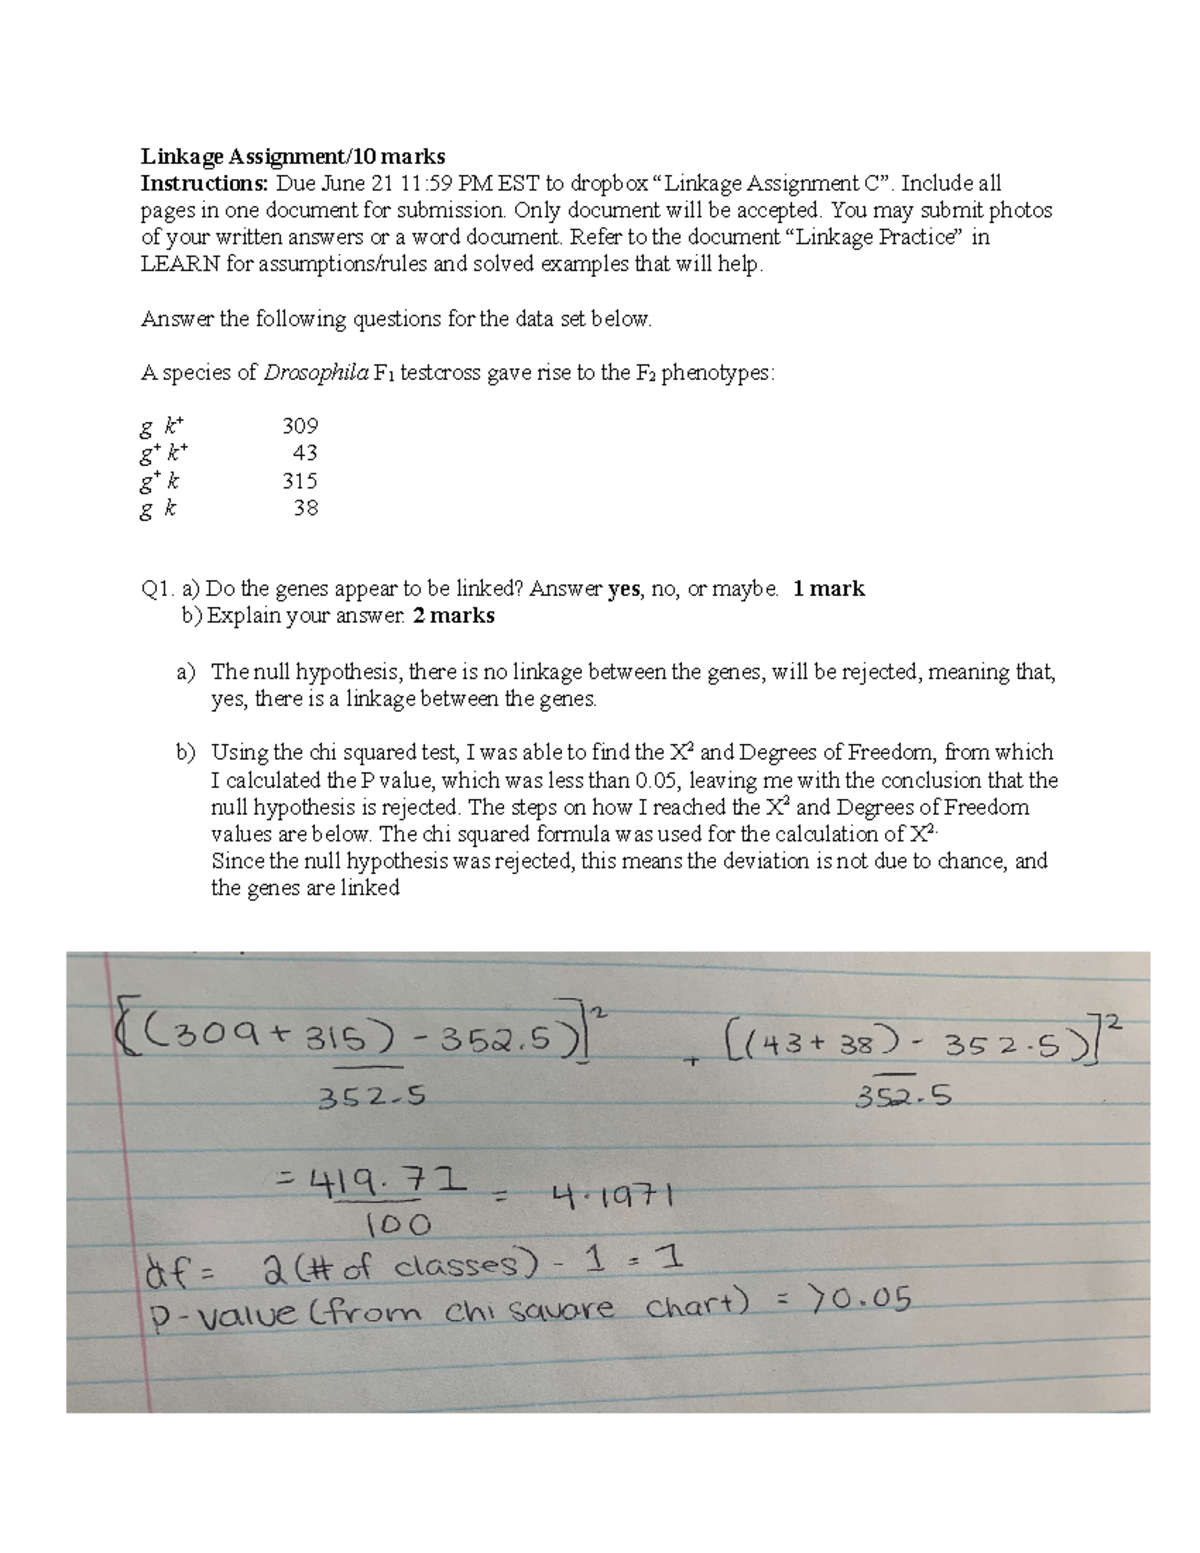 Linkage Assignment/10 marks
Instructions: Due June 21 11:59 PM EST to dropbox “Linkage Assignment C”. Include all
pages in one document for submission. Only document will be accepted. You may submit photos
of your written answers or a word document. Refer to the document “Linkage Practice” in
LEARN for assumptions/rules and solved examples that will help.
Answer the following questions for the data set below.
A species of Drosophila F₁ testcross gave rise to the F₂ phenotypes:
g k⁺ 309
g⁺ k⁺ 43
g⁺ k 315
g k 38
Q1. a) Do the genes appear to be linked? Answer yes, no, or maybe. 1 mark
b) Explain your answer. 2 marks
a) The null hypothesis, there is no linkage between the genes, will be rejected, meaning that,
yes, there is a linkage between the genes.
b) Using the chi squared test, I was able to find the X² and Degrees of Freedom, from which
I calculated the P value, which was less than 0.05, leaving me with the conclusion that the
null hypothesis is rejected. The steps on how I reached the X² and Degrees of Freedom
values are below. The chi squared formula was used for the calculation of X².
Since the null hypothesis was rejected, this means the deviation is not due to chance, and
the genes are linked
[((309+315)-352.5)]² + [((43+38)-352.5)]²
352.5 352.5
= 419.71 = 4.1971
100
df = 2 (# of classes) - 1 = 1
P-value (from chi square chart) = >0.05